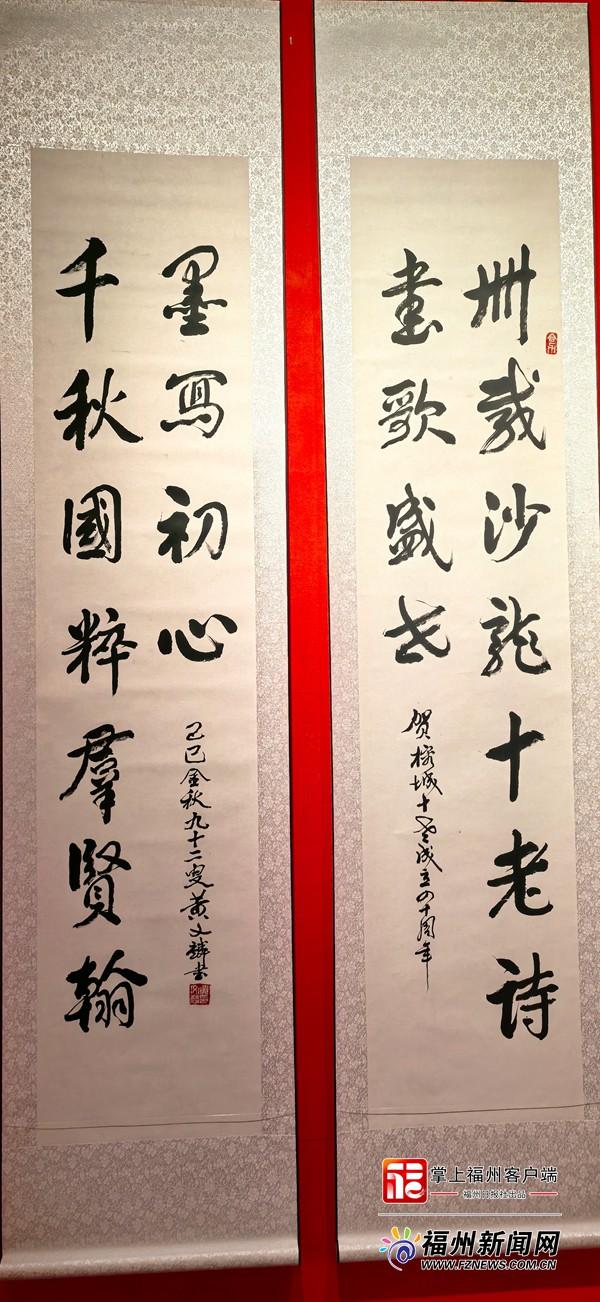 卌載沙龍十老詩
畫歌盛世
贺榕城十老成立四十周年
千秋國粹羣賢翰
墨寫初心
乙巳金秋九十二叟黄文麟书
掌上福州客户端
福州日报社出品
福州新闻网
WWW.FZNEWS.COM.CN